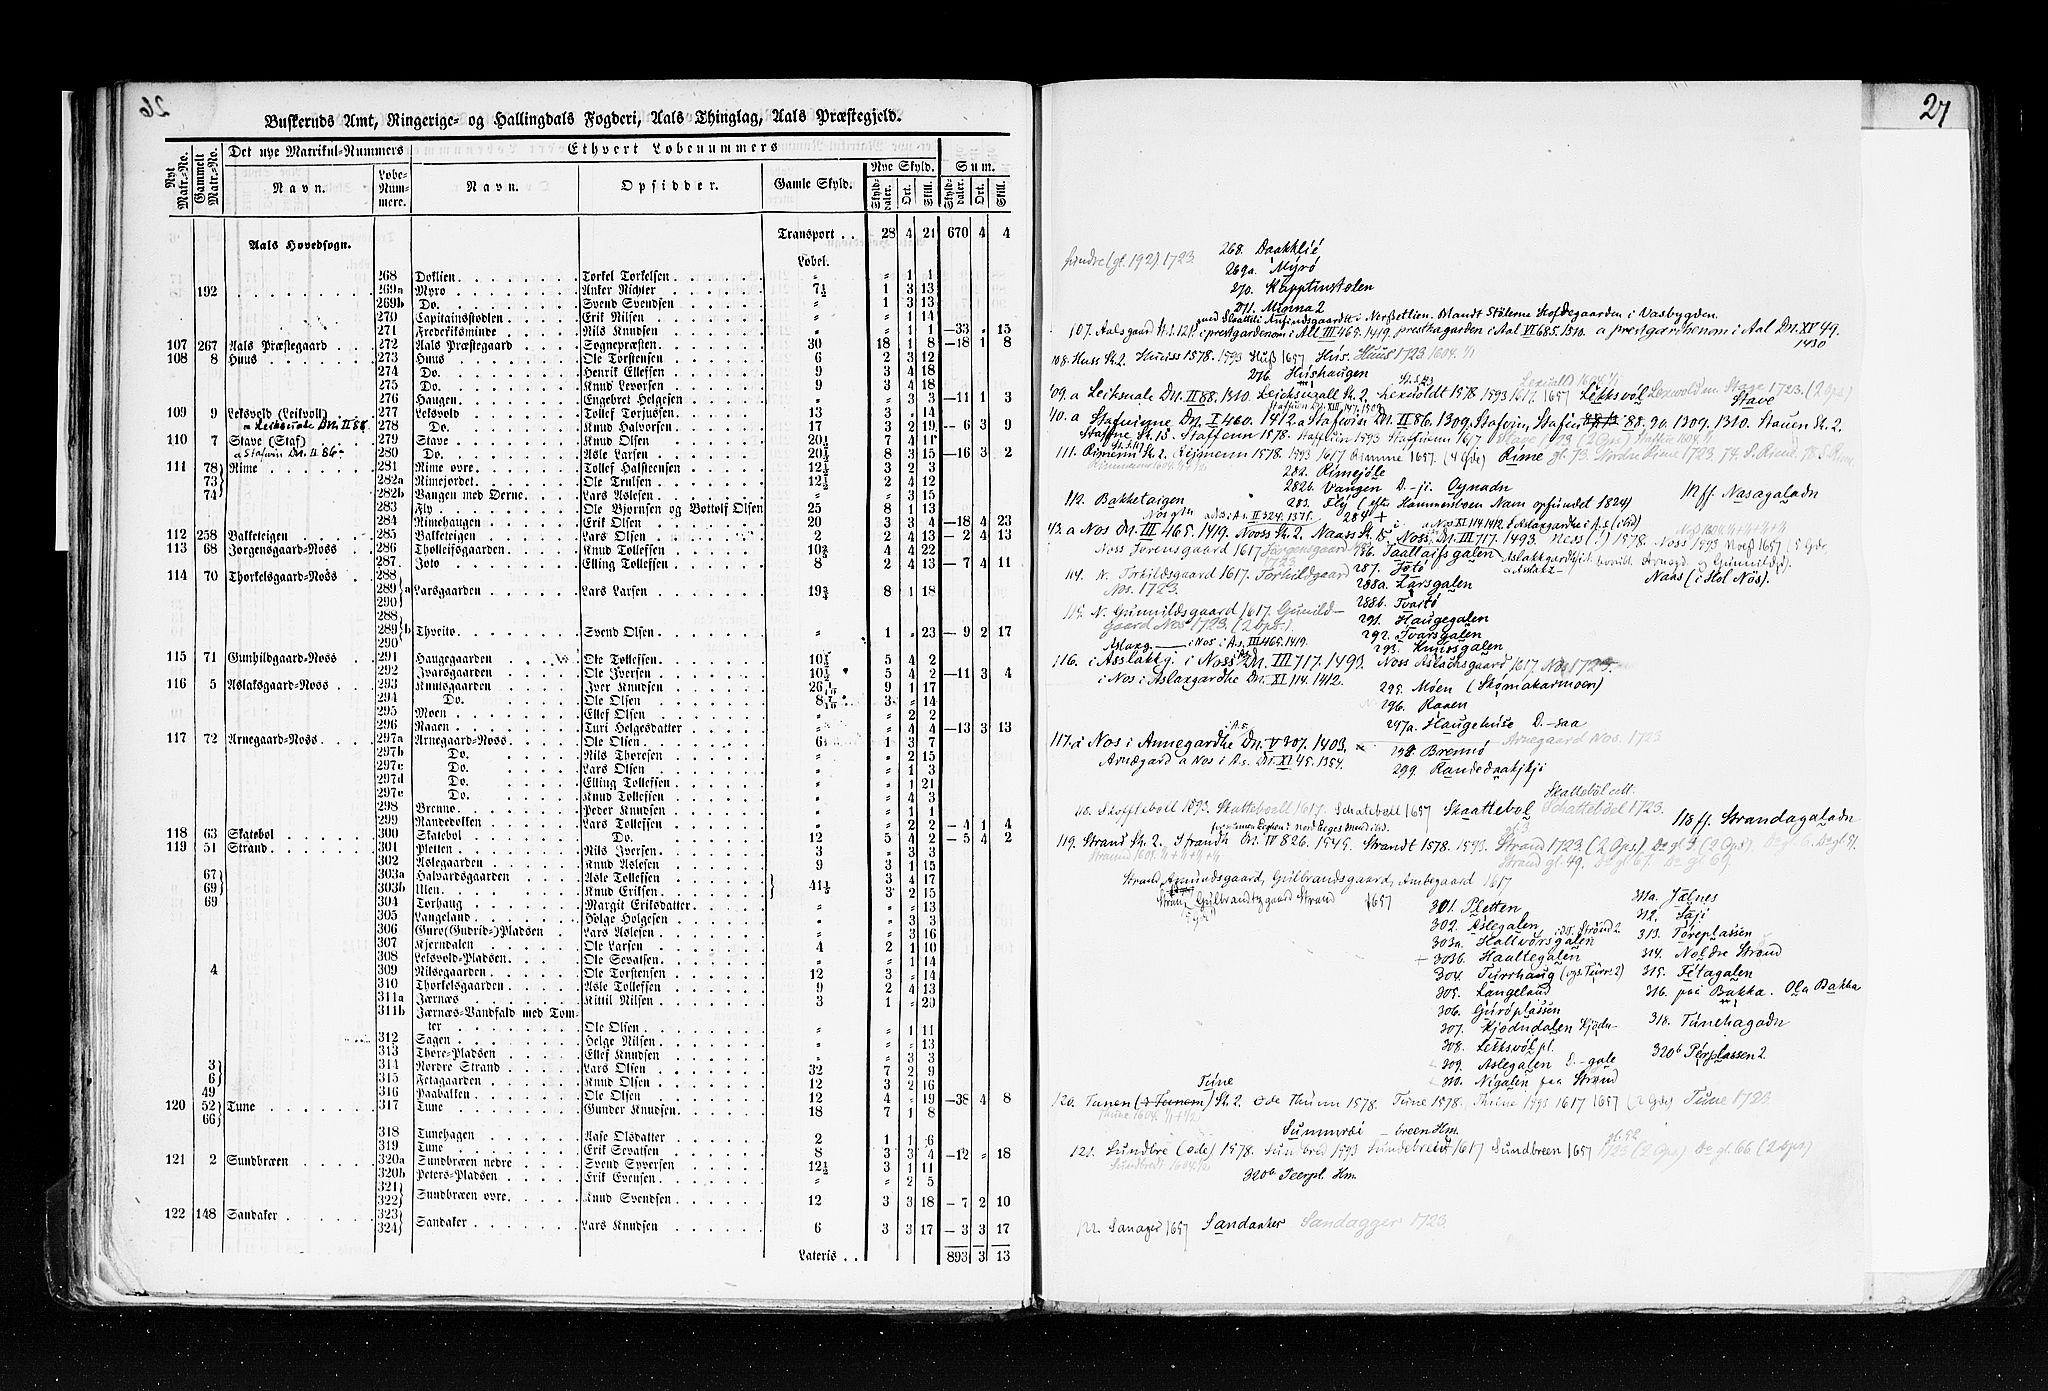 26
Buskeruds Amt, Ringerige- og Hallingdals Fogderi, Aals Thinglag, Aals Præstegjeld.
Nyt Matr.-No. Gammelt Matr.-No. Det nye Matrikul-Nummers Navn. Løbe-Nummere. Ethvert Løbenummers Navn. Opsidder. Gamle Skyld. Nye Skyld. Skylddaler. Ort. Skill. Sum. Skylddaler. Ort. Skill.
Aals Hovedsogn. Transport . . 28 4 21 670 4 4
Løbel.
268 Doklien Torkel Torkelsen " " 1 1
192 269a Myro Anker Richter 7½ 1 3 13
269b Do. Svend Svendsen " 1 3 13
270 Capitainsstølen Erik Nilsen " " 1 14
271 Frederiksminde Nils Knudsen " " 1 1 —33 " 15
107 267 Aals Præstegaard 272 Aals Præstegaard Sognepræsten 30 18 1 8 —18 1 8
108 8 Huus 273 Huus Ole Torstensen 6 2 3 12
274 Do. Henrik Ellefsen 9 3 4 18
275 Do. Knud Levorsen 9 3 4 18
276 Haugen Engebret Helgesen " " 3 3 —11 1 3
109 9 Leksvold (Leikvoll) 277 Leksvold Tollef Torjussen 13 3 " 14
a Leiksuale Dn. II 88 278 Do. Knud Halvorsen 17 3 2 19 — 6 3 9
110 7 Stave (Staf) 279 Stave Knud Olsen 20½ 7 4 11
a Stafvin Dn. II 86 280 Do. Asle Larsen 20½ 8 3 15 —16 3 2
111 78 Rime 281 Rime øvre Tollef Halsteensen 12½ 3 2 3
73 282a Rimejordet Ole Trulsen 12½ 2 4 12
74 282b Vangen med Oerne Lars Aslesen " " 3 15
283 Fly Ole Bjørnsen og Bottolf Olsen 25 8 1 13
284 Rimehaugen Erik Olsen 20 3 3 4 —18 4 23
112 258 Bakketeigen 285 Bakketeigen Lars Olsen 2 2 4 13 — 2 4 13
113 68 Jørgensgaard-Noss 286 Tholleifsgaarden Knud Tollefsen 10⅔ 4 4 22
287 Joto Elling Tollefsen 8 2 4 13 — 7 4 11
114 70 Thorkelsgaard-Noss 288
289 a Larsgaarden Lars Larsen 19¾ 8 1 18
290
288
289 b Thveito Svend Olsen " 1 " 23 — 9 2 17
290
115 71 Gunhildgaard-Noss 291 Haugegaarden Ole Tollefsen 10½ 5 4 2
292 Ivarsgaarden Ole Iversen 10½ 5 4 2 —11 3 4
116 5 Aslaksgaard-Noss 293 Knutsgaarden Iver Knudsen 26 1/10 9 1 17
294 Do. Ole Olsen 8 7/10 3 " 14
295 Moen Ellef Olsen " " 2 2
296 Raaen Turi Helgesdatter " " 4 4 —13 3 13
117 72 Arnegaard-Noss 297a Arnegaard-Noss Ole Olsen 6 1 3 7
297b Do. Nils Thoresen " " 2 15
297c Do. Lars Olsen " " 1 3
297d Do. Elling Tollefsen " " 1 21
297e Do. Knud Tollefsen " " 4 3
298 Brenno Peder Knudsen " " 1 1
299 Randedokken Lars Tollefsen " " 2 2 — 4 1 4
118 63 Skatebøl 300 Skatebøl Do. 12 5 4 2 — 5 4 2
119 51 Strand 301 Pletten Nils Iversen 3 " 3 3
302 Aslegaarden Knud Aslesen 9 3 1 15
67 303a Halvardsgaarden Asle Tollefsen 41⅕ 3 4 17
69 303b Ulen Knud Eriksen 3 2 15
69 304 Torhaug Margit Eriksdatter " " " 13
305 Langeland Helge Helgesen " " 3 3
306 Guro (Gudrid-) Pladsen Lars Aslesen " " 3 16
307 Kjerndalen Ole Larsen 4 2 1 10
308 Leksvold-Pladsen Ole Sevatsen " " 1 14
4 309 Nilsegaarden Ole Torstensen 12 3 " 14
310 Thorkelsgaarden Asle Tollefsen 9 2 4 13
311a Jærnæs Kittil Nilsen 3 1 " 20
311b Jærnæs-Vandfald med Tomter Ole Olsen " " 1 11
312 Sagen Helge Nilsen " " " 13
313 Thore-Pladsen Ellef Knudsen " " 3 3
3 314 Nordre Strand Lars Olsen 32 7 2 9
6 315 Fetagaarden Knud Olsen 12 3 2 16
49 316 Paabakken Ole Olsen 12 4 " 19 —38 4 8
120 52 Tune 317 Tune Gunder Knudsen 18 7 1 8
66
318 Tunehagen Aase Olsdatter 2 1 1 6
319 Tune Erik Sevatsen 8 3 3 4 —12 " 18
121 2 Sundbræen 320a Sundbræen nedre Svend Syversen 12½ 3 1 11
320b Peters-Pladsen Erik Evensen " " 2 5
321
322 Sundbræen øvre Knud Svendsen 12 3 3 18 — 7 2 10
122 148 Sandaker 323
324 Sandaker Lars Knudsen 6 3 3 17 — 3 3 17
Lateris . . 893 3 13
27
(gl. 192) 1723. 268. Daakklie
269a. Myrø
270. Kapptinstølen
271. Minna 2
107. Aalsgaard St. S. 121. i prestgardenom i Aal III 465. 1419. prestkagarden i Aal VI 685. 1510. a prestgardhenom i Aal Dn. XV 49. 1430
108. Huss St. 2. Huuss 1578. 1593 Huß 1657 Hús. Huus 1723 1604. 1/1
276. Húshaugen
109. a Leiksuale Dn. II 88. 1310. Leksuoldt 1578 1593 1617. 1657 Leksvøl Lexvold m. Stage 1723. (2 Ops.)
Stave
110. a Stafuigne Dn. I 460. 1412. a Stafvin Dn. II 86. 1309. Stafvin, Stafin 88. 90. 1309. 1310. Stauen St. 2.
Staffne St. 15. Staffenn 1578. Staffuin 1593 Staffuenn 1617. Stage 1723 (2 Ops)
111. Rimenn St. 2. Reijmenn 1578. 1593 1617 Rimme 1657. (4 Gde) Rime gl. 73. Nordre Rime 1723. 74. S. Rime
282. Rimejøle
282b. Vangen D. -ji. Oynadn
112. Bakketaigen 283. Flý (efter Hammersboen Navn opfundet 1824) 112 ff. Nasagaladn
284 +
113. a Nos Dn. III 465. 1419. Nooss St. 2. Naass St. 15 Noss, Dn. III 717. 1493. Ness (!) 1578. Noss 1593 Noß 1657 (5 Gde)
Noss Jorensgaard 1617 Jørgensgaard 286. Taallaifsgalen
287. Jøtó Naas (i Hol Nøs).
114. N. Torkildsgaard 1617. Torkildgaard Nos. 1723. 288a. Larsgalen
288b. Tvartø
115. N. Gunnildsgaard 1617. Gunildgaard Nos 1723. (2 Ops.) 291. Haugegalen
292. Ivarsgalen
293. Knussgalen
116. i Asslakkg. i Noss Dn. III 717. 1493. Noss Aslachsgaard 1617. Nos 1723.
i Nos i Aslaxgardhe Dn. XI 114. 1412. 295. Møen (Skomakarmoen)
296. Raaen
297a. Haugehúse D. -saa
117. a Nos i Annegardhe Dn. V 307. 1403. Arnegaard Nos. 1723
298. Brennø
Arnægard a Nos i As. Dn. XI 45. 1354. 299. Randedaakkji
118. Skoffteboll 1593. Skatteboell 1617. Schateboll 1657 Skaattebøl Schattebøel 1723. 118 ff. Strandagaladn
119. Strand St. 2. Strandh Dn. IV 826. 1545. Strandt 1578. 1593. Strand 1723 (2 Ops.) Do gl. 4 (2 Ops). Do gl. 6. Do gl. 51.
Strand gl. 49. Do gl. 67. Do gl. 69.
Strand Amundsgaard, Gulbrandsgaard, Arnbegaard 1617
Gulbrandtzgaard Strand 1657 301. Pletten 311a. Jålnes
302. Aslegalen 312. Saji
303a. Hallvorsgalen 313. Toreplassen
303b. Haaltegalen 314. Noldre Strand
304. Turrhaug (ogs. Turr 2) 315. Fetagalen
305. Langeland 316. paa Bakka. Ola Bakka
306. Guróplassen
307. Kjødndalen 318. Túnehagadn
308. Leksvøl pl. 320b Perplassen 2.
309. Aslegalen
310. Nigalen paa Strand
Túne
120. Tunen (i Tunom) St. 2. Øde Thunn 1578. Tune 1578. Thune 1593 1617 1657 (2 Gde) Tune 1723
121. Sundbre (øde) 1578. Sundbred 1593 Sundebreid 1617 Sundbreen 1657 1723 (2 Ops) Do gl. 66 (2 Ops)
320b Peerpl. Hm.
122. Sanager 1657 Sandaaker Sandagger 1723.